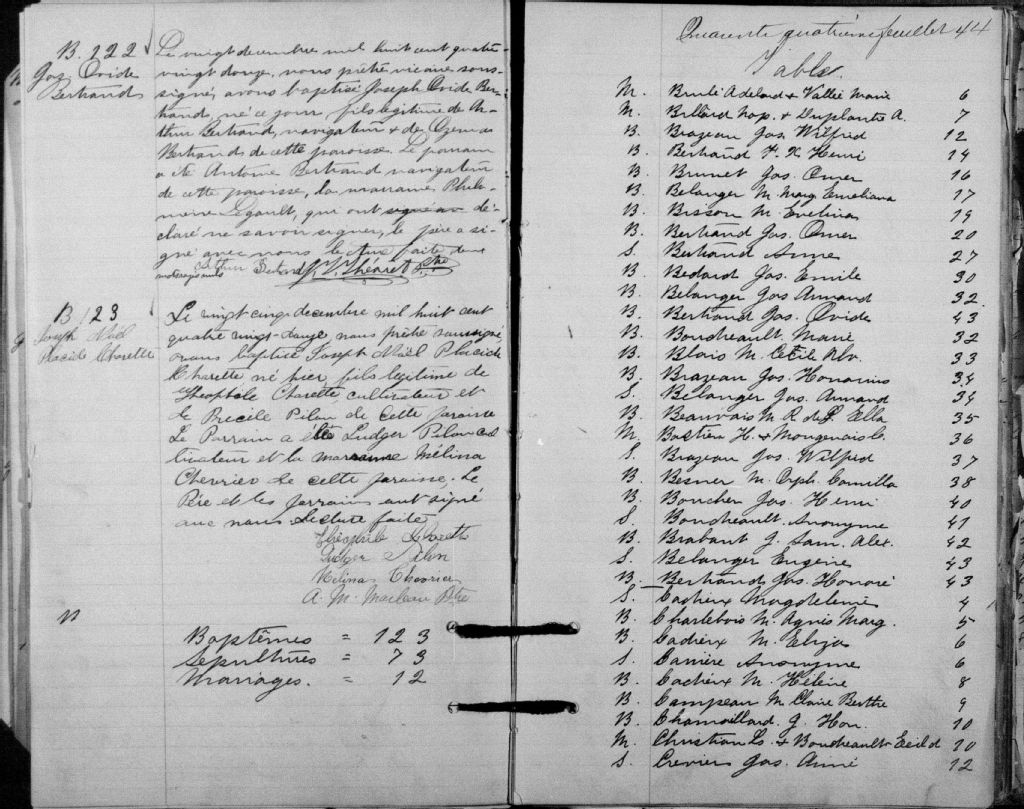 B. 122
Jos. Ovide
Bertrand
Le vingt decembre mil huit cent quatre-
vingt douze, nous prêtre vicaire sous-
signé, avons baptisé Joseph Ovide Ber-
trand, né ce jour, fils légitime de Ar-
thur Bertrand, navigateur & de
Bertrand de cette paroisse. Le parrain
a été Antoine Bertrand navigateur
de cette paroisse, la marraine, Philo-
mène Legault, qui ont signé av dé-
claré ne savoir signer, le père a si-
gné avec nous. Lecture faite deux
mots rayés nuls Arthur Bertrand
B 123
Joseph Noël
Placide Charette
Le vingt cinq decembre mil huit cent
quatre vingt-douze nous prêtre soussigné,
avons baptisé Joseph Noël Placide
Charette né hier, fils légitime de
Théophile Charette cultivateur et
de Pilon de cette paroisse
Le Parrain a été Ludger Pilon cul
tivateur et la marraine Mélina
Chevrier de cette paroisse. Le
Père et les parrains ont signé
avec nous Lecture faite
Théophile Charette
Ludger Pilon
Mélina Chevrier
A. M. Ptre
Baptêmes = 123
Sepultures = 73
Mariages. = 12
Quarante quatrième feuillet 44
Table
M. Brulé Adelard & Vallée Marie 6
M. Billard Nap. & Duplanté A. 7
B. Brazeau Jos. Wilfred 12
B. Bertrand F. X Henri 14
B. Brunet Jos. Omer 16
B. Belanger M. Marg Emeliana 17
B. Bisson M. Evelina 19
B. Bertrand Jos. Omer 20
S. Bertrand Anne 27
B. Bedard Jos. Emile 30
B. Belanger Jos Armand 32
B. Bertrand Jos. Ovide 43
B. Boudreault Marie 32
B. Blais M. Cécile Alv. 33
B. Brazeau Jos. Honorius 34
S. Belanger Jos. Armand 34
B. Beauvais M. R. de L. Ella 35
M. Bastien H. & Mongenais C. 36
S. Brazeau Jos. Wilfred 37
B. Besner M. Orph. Camilla 38
B. Boucher Jos. Henri 40
S. Boudreault Anonyme 41
B. Brabant J. Sam. Alex. 42
S. Belanger Eugène 43
B. Bertrand Jos. Honoré 43
S. Cadieux Magdeleine 4
B. Charlebois M. Agnès Marg. 5
B. Cadieux M. Eliza 6
S. Carrière Anonyme 6
B. Cadieux M. Hélène 8
B. Campeau M. Claire Berthe 9
B. J. Hon. 10
M. Christian Ls. & Boudreault 10
S. Crevier Jos. Aimé 12